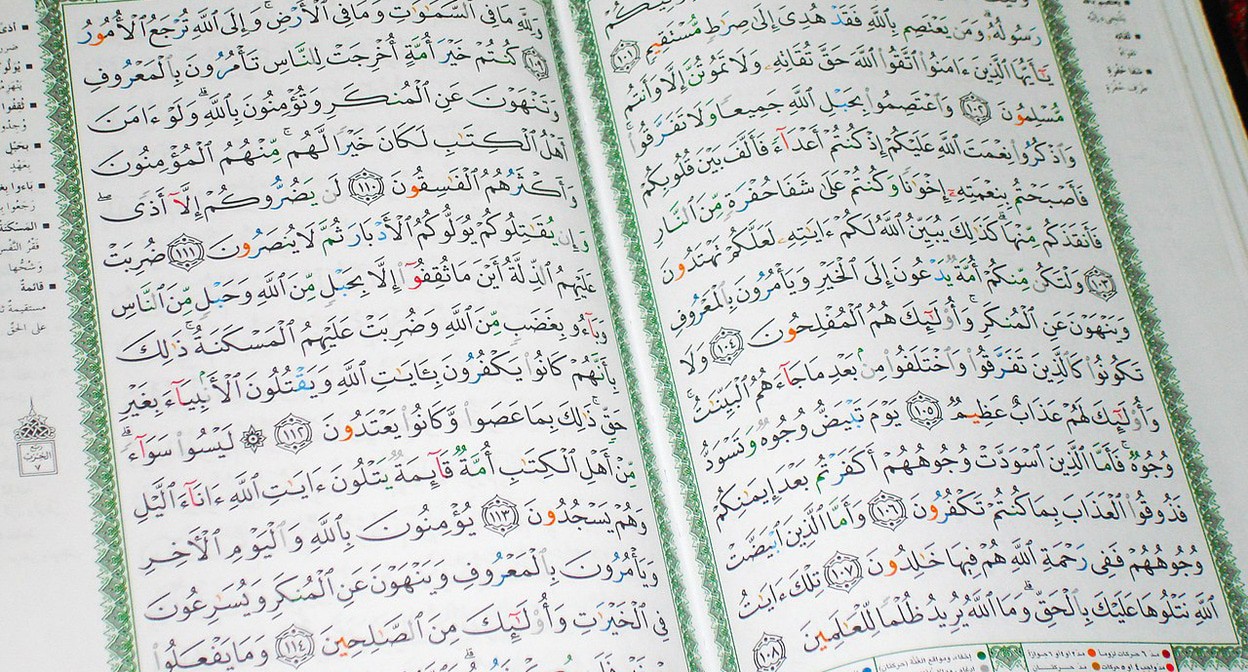 رَسُولُهُۥ ۗ وَمَن يَعْتَصِم بِٱللَّهِ فَقَدْ هُدِىَ إِلَىٰ صِرَٰطٍ مُّسْتَقِيمٍ ١٠١
يَـٰٓأَيُّهَا ٱلَّذِينَ ءَامَنُوا۟ ٱتَّقُوا۟ ٱللَّهَ حَقَّ تُقَاتِهِۦ وَلَا تَمُوتُنَّ إِلَّا وَأَنتُم
مُّسْلِمُونَ ١٠٢ وَٱعْتَصِمُوا۟ بِحَبْلِ ٱللَّهِ جَمِيعًا وَلَا تَفَرَّقُوا۟ ۚ
وَٱذْكُرُوا۟ نِعْمَتَ ٱللَّهِ عَلَيْكُمْ إِذْ كُنتُمْ أَعْدَآءً فَأَلَّفَ بَيْنَ قُلُوبِكُمْ
فَأَصْبَحْتُم بِنِعْمَتِهِۦٓ إِخْوَٰنًا وَكُنتُمْ عَلَىٰ شَفَا حُفْرَةٍ مِّنَ ٱلنَّارِ
فَأَنقَذَكُم مِّنْهَا ۗ كَذَٰلِكَ يُبَيِّنُ ٱللَّهُ لَكُمْ ءَايَـٰتِهِۦ لَعَلَّكُمْ تَهْتَدُونَ
١٠٣ وَلْتَكُن مِّنكُمْ أُمَّةٌ يَدْعُونَ إِلَى ٱلْخَيْرِ وَيَأْمُرُونَ بِٱلْمَعْرُوفِ
وَيَنْهَوْنَ عَنِ ٱلْمُنكَرِ ۚ وَأُو۟لَـٰٓئِكَ هُمُ ٱلْمُفْلِحُونَ ١٠٤ وَلَا
تَكُونُوا۟ كَٱلَّذِينَ تَفَرَّقُوا۟ وَٱخْتَلَفُوا۟ مِنۢ بَعْدِ مَا جَآءَهُمُ ٱلْبَيِّنَـٰتُ ۚ
وَأُو۟لَـٰٓئِكَ لَهُمْ عَذَابٌ عَظِيمٌ ١٠٥ يَوْمَ تَبْيَضُّ وُجُوهٌ وَتَسْوَدُّ
وُجُوهٌ ۚ فَأَمَّا ٱلَّذِينَ ٱسْوَدَّتْ وُجُوهُهُمْ أَكَفَرْتُم بَعْدَ إِيمَـٰنِكُمْ
فَذُوقُوا۟ ٱلْعَذَابَ بِمَا كُنتُمْ تَكْفُرُونَ ١٠٦ وَأَمَّا ٱلَّذِينَ ٱبْيَضَّتْ
وُجُوهُهُمْ فَفِى رَحْمَةِ ٱللَّهِ هُمْ فِيهَا خَـٰلِدُونَ ١٠٧ تِلْكَ ءَايَـٰتُ
ٱللَّهِ نَتْلُوهَا عَلَيْكَ بِٱلْحَقِّ ۗ وَمَا ٱللَّهُ يُرِيدُ ظُلْمًا لِّلْعَـٰلَمِينَ ١٠٨
وَلِلَّهِ مَا فِى ٱلسَّمَـٰوَٰتِ وَمَا فِى ٱلْأَرْضِ ۚ وَإِلَى ٱللَّهِ تُرْجَعُ ٱلْأُمُورُ
١٠٩ كُنتُمْ خَيْرَ أُمَّةٍ أُخْرِجَتْ لِلنَّاسِ تَأْمُرُونَ بِٱلْمَعْرُوفِ
وَتَنْهَوْنَ عَنِ ٱلْمُنكَرِ وَتُؤْمِنُونَ بِٱللَّهِ ۗ وَلَوْ ءَامَنَ
أَهْلُ ٱلْكِتَـٰبِ لَكَانَ خَيْرًا لَّهُم ۚ مِّنْهُمُ ٱلْمُؤْمِنُونَ
وَأَكْثَرُهُمُ ٱلْفَـٰسِقُونَ ١١٠ لَن يَضُرُّوكُمْ إِلَّآ أَذًى ۖ
وَإِن يُقَـٰتِلُوكُمْ يُوَلُّوكُمُ ٱلْأَدْبَارَ ثُمَّ لَا يُنصَرُونَ ١١١ ضُرِبَتْ
عَلَيْهِمُ ٱلذِّلَّةُ أَيْنَ مَا ثُقِفُوٓا۟ إِلَّا بِحَبْلٍ مِّنَ ٱللَّهِ وَحَبْلٍ مِّنَ ٱلنَّاسِ
وَبَآءُو بِغَضَبٍ مِّنَ ٱللَّهِ وَضُرِبَتْ عَلَيْهِمُ ٱلْمَسْكَنَةُ ۚ ذَٰلِكَ
بِأَنَّهُمْ كَانُوا۟ يَكْفُرُونَ بِـَٔايَـٰتِ ٱللَّهِ وَيَقْتُلُونَ ٱلْأَنۢبِيَآءَ بِغَيْرِ
حَقٍّ ۚ ذَٰلِكَ بِمَا عَصَوا۟ وَّكَانُوا۟ يَعْتَدُونَ ١١٢ ۞ لَيْسُوا۟ سَوَآءً ۗ
مِّنْ أَهْلِ ٱلْكِتَـٰبِ أُمَّةٌ قَآئِمَةٌ يَتْلُونَ ءَايَـٰتِ ٱللَّهِ ءَانَآءَ ٱلَّيْلِ
وَهُمْ يَسْجُدُونَ ١١٣ يُؤْمِنُونَ بِٱللَّهِ وَٱلْيَوْمِ ٱلْـَٔاخِرِ
وَيَأْمُرُونَ بِٱلْمَعْرُوفِ وَيَنْهَوْنَ عَنِ ٱلْمُنكَرِ وَيُسَـٰرِعُونَ
فِى ٱلْخَيْرَٰتِ وَأُو۟لَـٰٓئِكَ مِنَ ٱلصَّـٰلِحِينَ ١١٤ وَمَا يَفْعَلُوا۟
المسكنة
فقر النفس
وشحها
قائمة
مستقيمة
على الحق
الحزب
٧